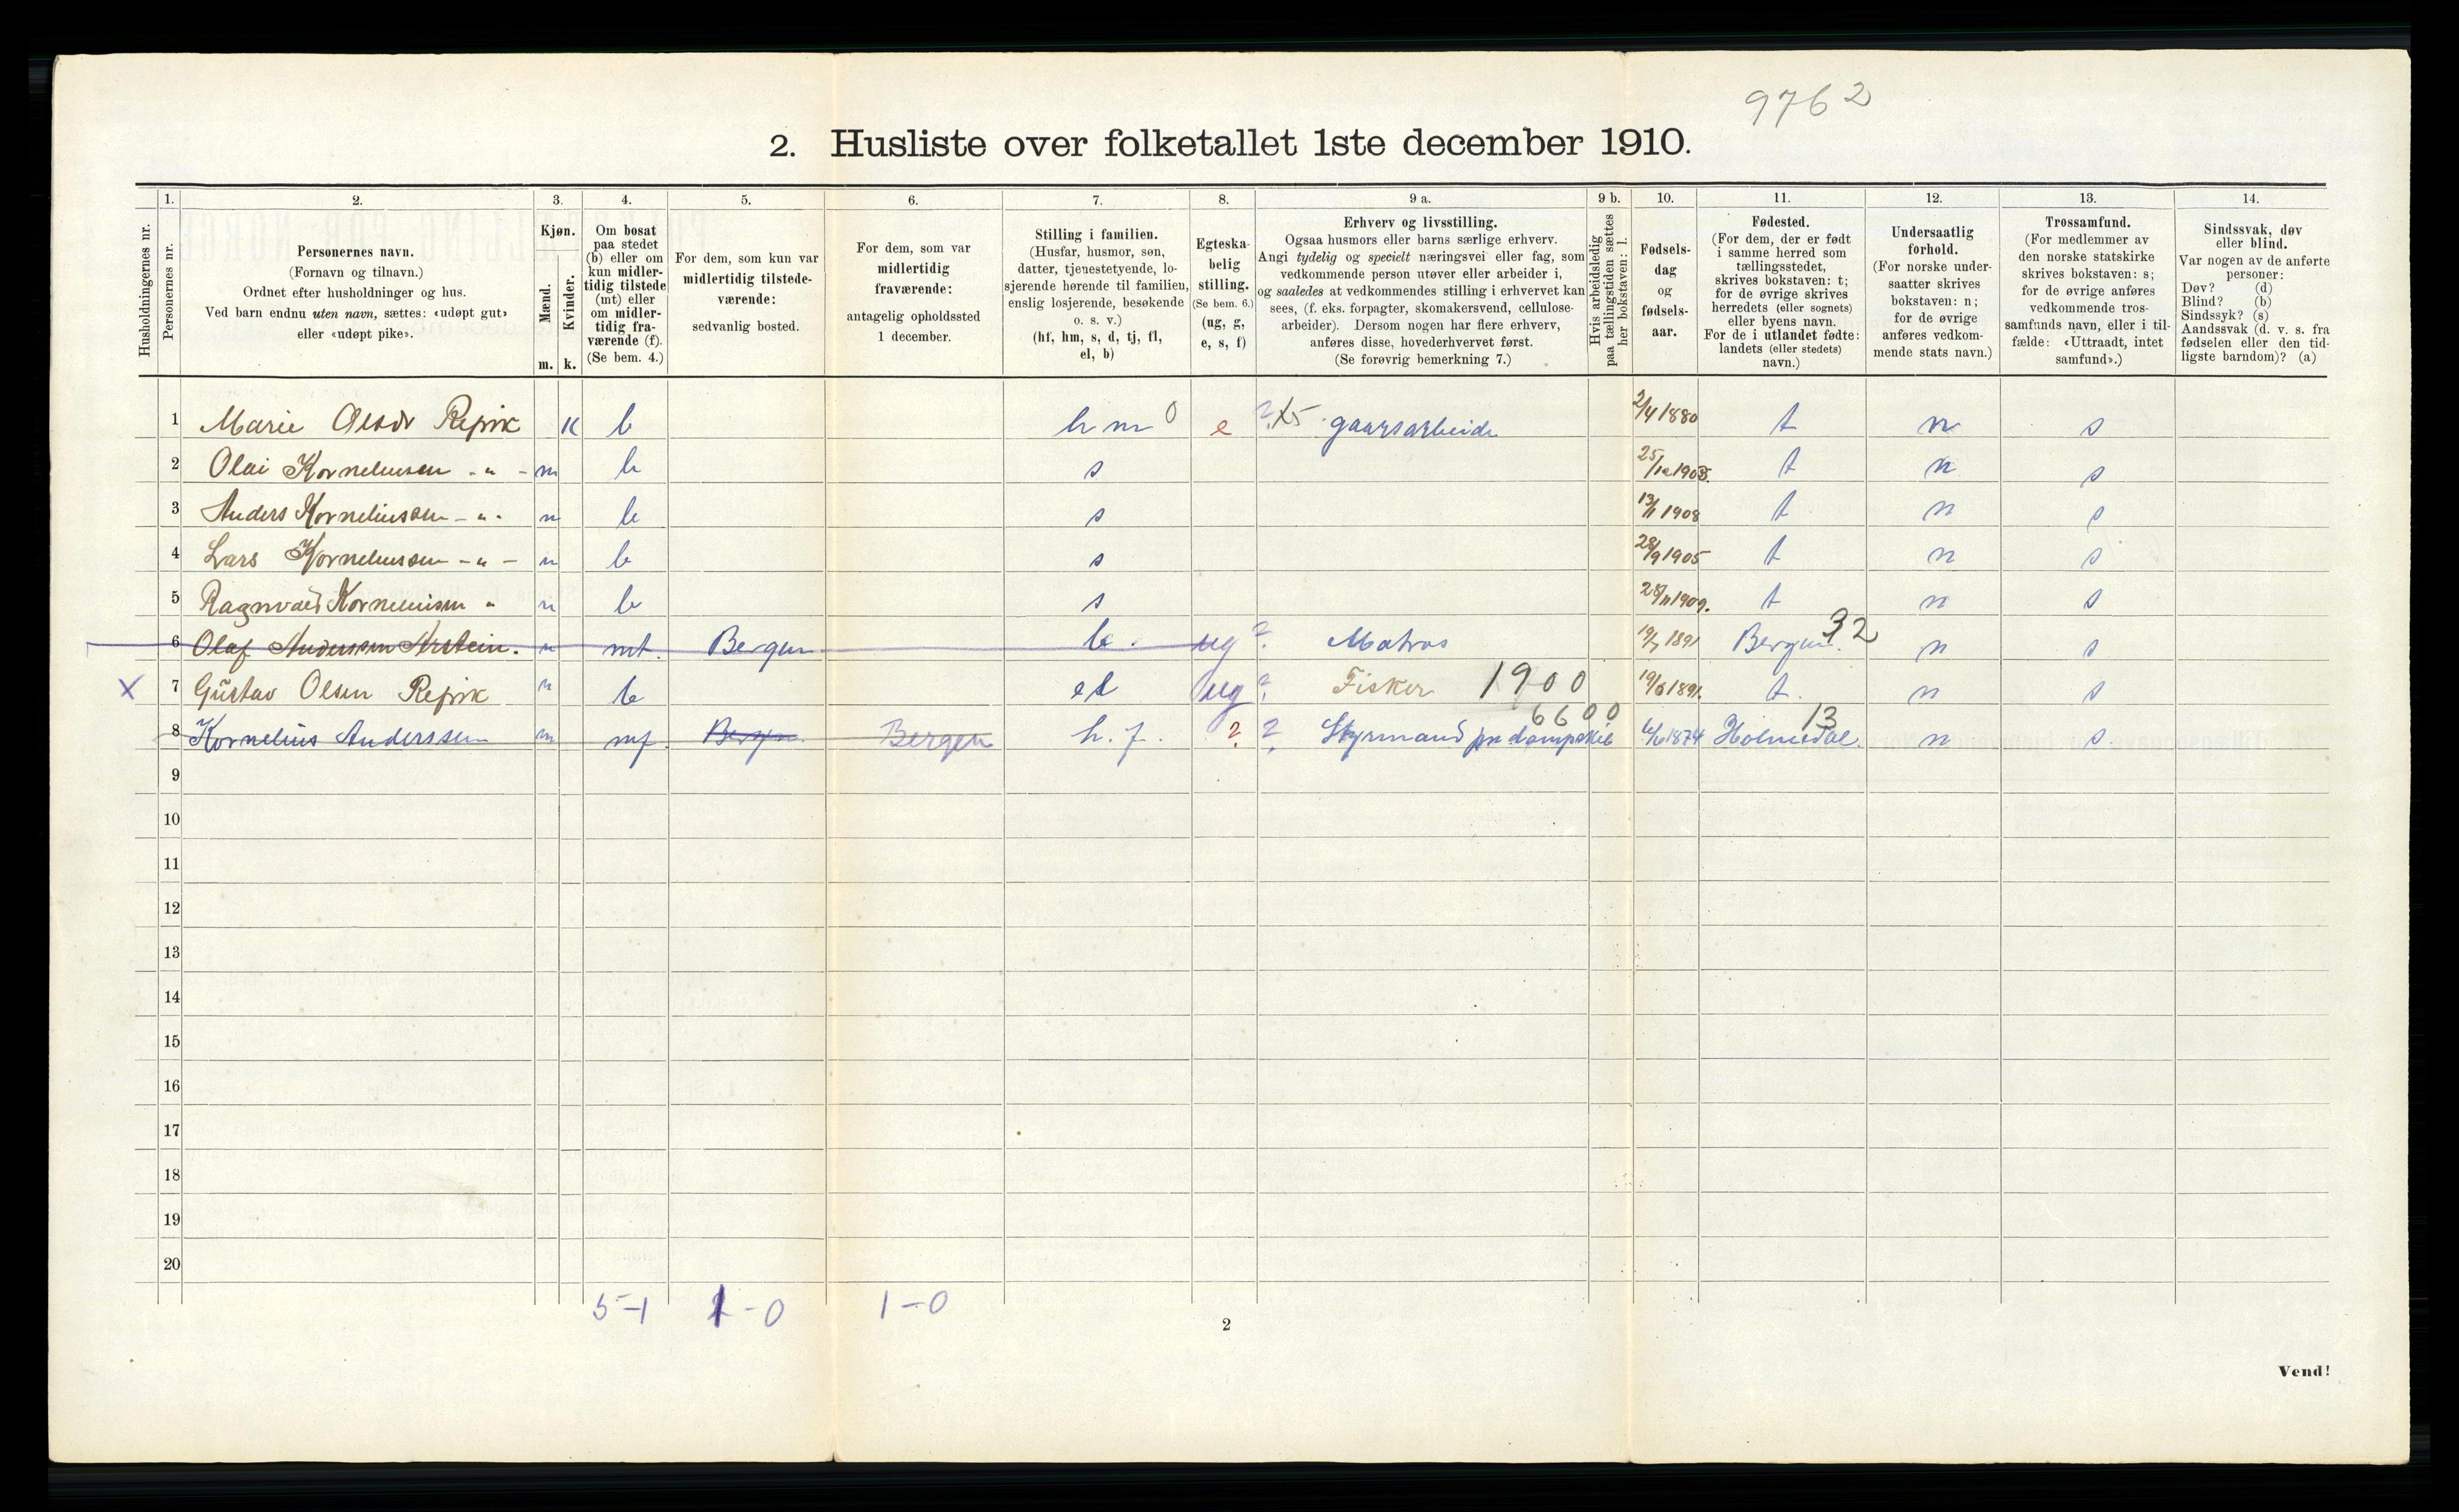 9762
2. Husliste over folketallet 1ste december 1910.
Husholdningernes nr.
1. Personernes nr.
2. Personernes navn.
(Fornavn og tilnavn.)
Ordnet efter husholdninger og hus.
Ved barn endnu uten navn, sættes: «udøpt gut»
eller «udøpt pike».
3. Kjøn.
Mænd. m.
Kvinder. k.
4. Om bosat
paa stedet
(b) eller om
kun midler-
tidig tilstede
(mt) eller
om midler-
tidig fra-
værende (f).
(Se bem. 4.)
5. For dem, som kun var
midlertidig tilstede-
værende:
sedvanlig bosted.
6. For dem, som var
midlertidig
fraværende:
antagelig opholdssted
1 december.
7. Stilling i familien.
(Husfar, husmor, søn,
datter, tjenestetyende, lo-
sjerende hørende til familien,
enslig losjerende, besøkende
o. s. v.)
(hf, hm, s, d, tj, fl,
el, b)
8. Egteska-
belig
stilling.
(Se bem. 6.)
(ug, g,
e, s, f)
9 a. Erhverv og livsstilling.
Ogsaa husmors eller barns særlige erhverv.
Angi tydelig og specielt næringsvei eller fag, som
vedkommende person utøver eller arbeider i,
og saaledes at vedkommendes stilling i erhvervet kan
sees, (f. eks. forpagter, skomakersvend, cellulose-
arbeider). Dersom nogen har flere erhverv,
anføres disse, hovederhvervet først.
(Se forøvrig bemerkning 7.)
9 b. Hvis arbeidsledig
paa tællingstiden sættes
her bokstaven: l.
10. Fødsels-
dag
og
fødsels-
aar.
11. Fødested.
(For dem, der er født
i samme herred som
tællingsstedet,
skrives bokstaven: t;
for de øvrige skrives
herredets (eller sognets)
eller byens navn.
For de i utlandet fødte:
landets (eller stedets)
navn.)
12. Undersaatlig
forhold.
(For norske under-
saatter skrives
bokstaven: n;
for de øvrige
anføres vedkom-
mende stats navn.)
13. Trossamfund.
(For medlemmer av
den norske statskirke
skrives bokstaven: s;
for de øvrige anføres
vedkommende tros-
samfunds navn, eller i til-
fælde: «Uttraadt, intet
samfund».)
14. Sindssvak, døv
eller blind.
Var nogen av de anførte
personer:
Døv? (d)
Blind? (b)
Sindssyk? (s)
Aandssvak (d. v. s. fra
fødselen eller den tid-
ligste barndom)? (a)
1 Marie Olsdr k b h m 0 e ? gaarsarbeide 2/4 1880 t n s
2 Olai Korneliussen - " - m b s t n s
3 Anders Korneliussen - " - m b s 1908 t n s
4 Lars Korneliussen - " - m b s 28/9 1905 t n s
5 Ragnvald Korneliusen " m b s 1909. t n s
6 Olaf Anderssen m mt. Bergen b. ug ? Matros 1891 Bergen. 32 n s
X 7 Gustav Olsen m b el ug ? Fisker 1900 1891. t. n s
8 Kornelius Anderssen m mf. Bergen Bergen h. f. ? ? Styrmand paa dampskib 6600 1874 Holmedal. 13 n s
9
10
11
12
13
14
15
16
17
18
19
20
5-1 1-0 1-0
2
Vend!